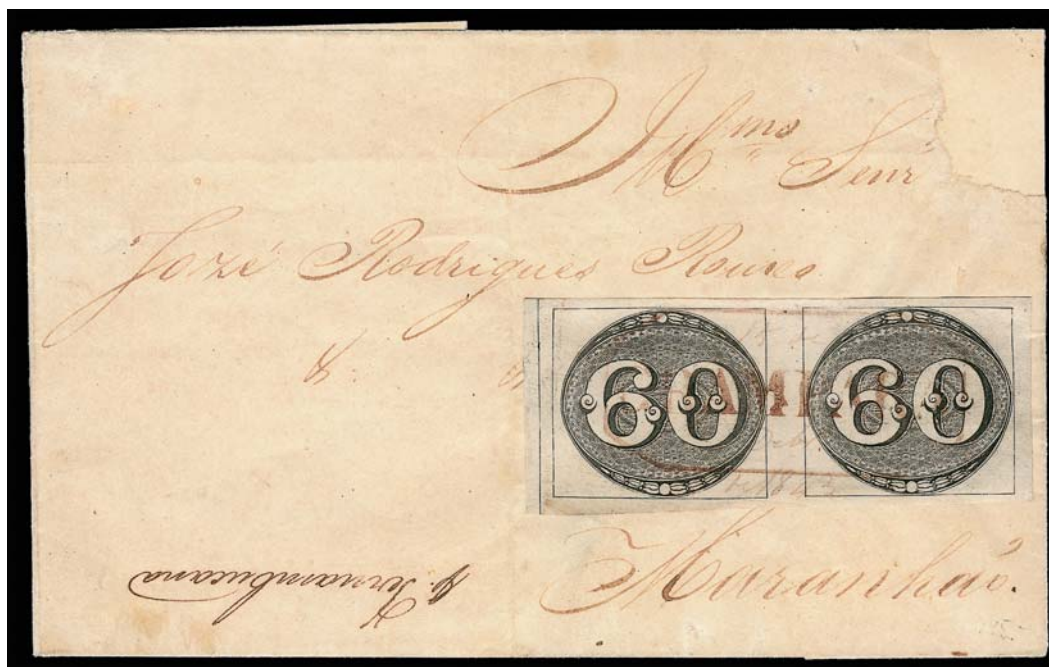 Illmo Senr
Jozé Rodrigues Rouxo
60 60
Maranhão.
p. Pernambucana